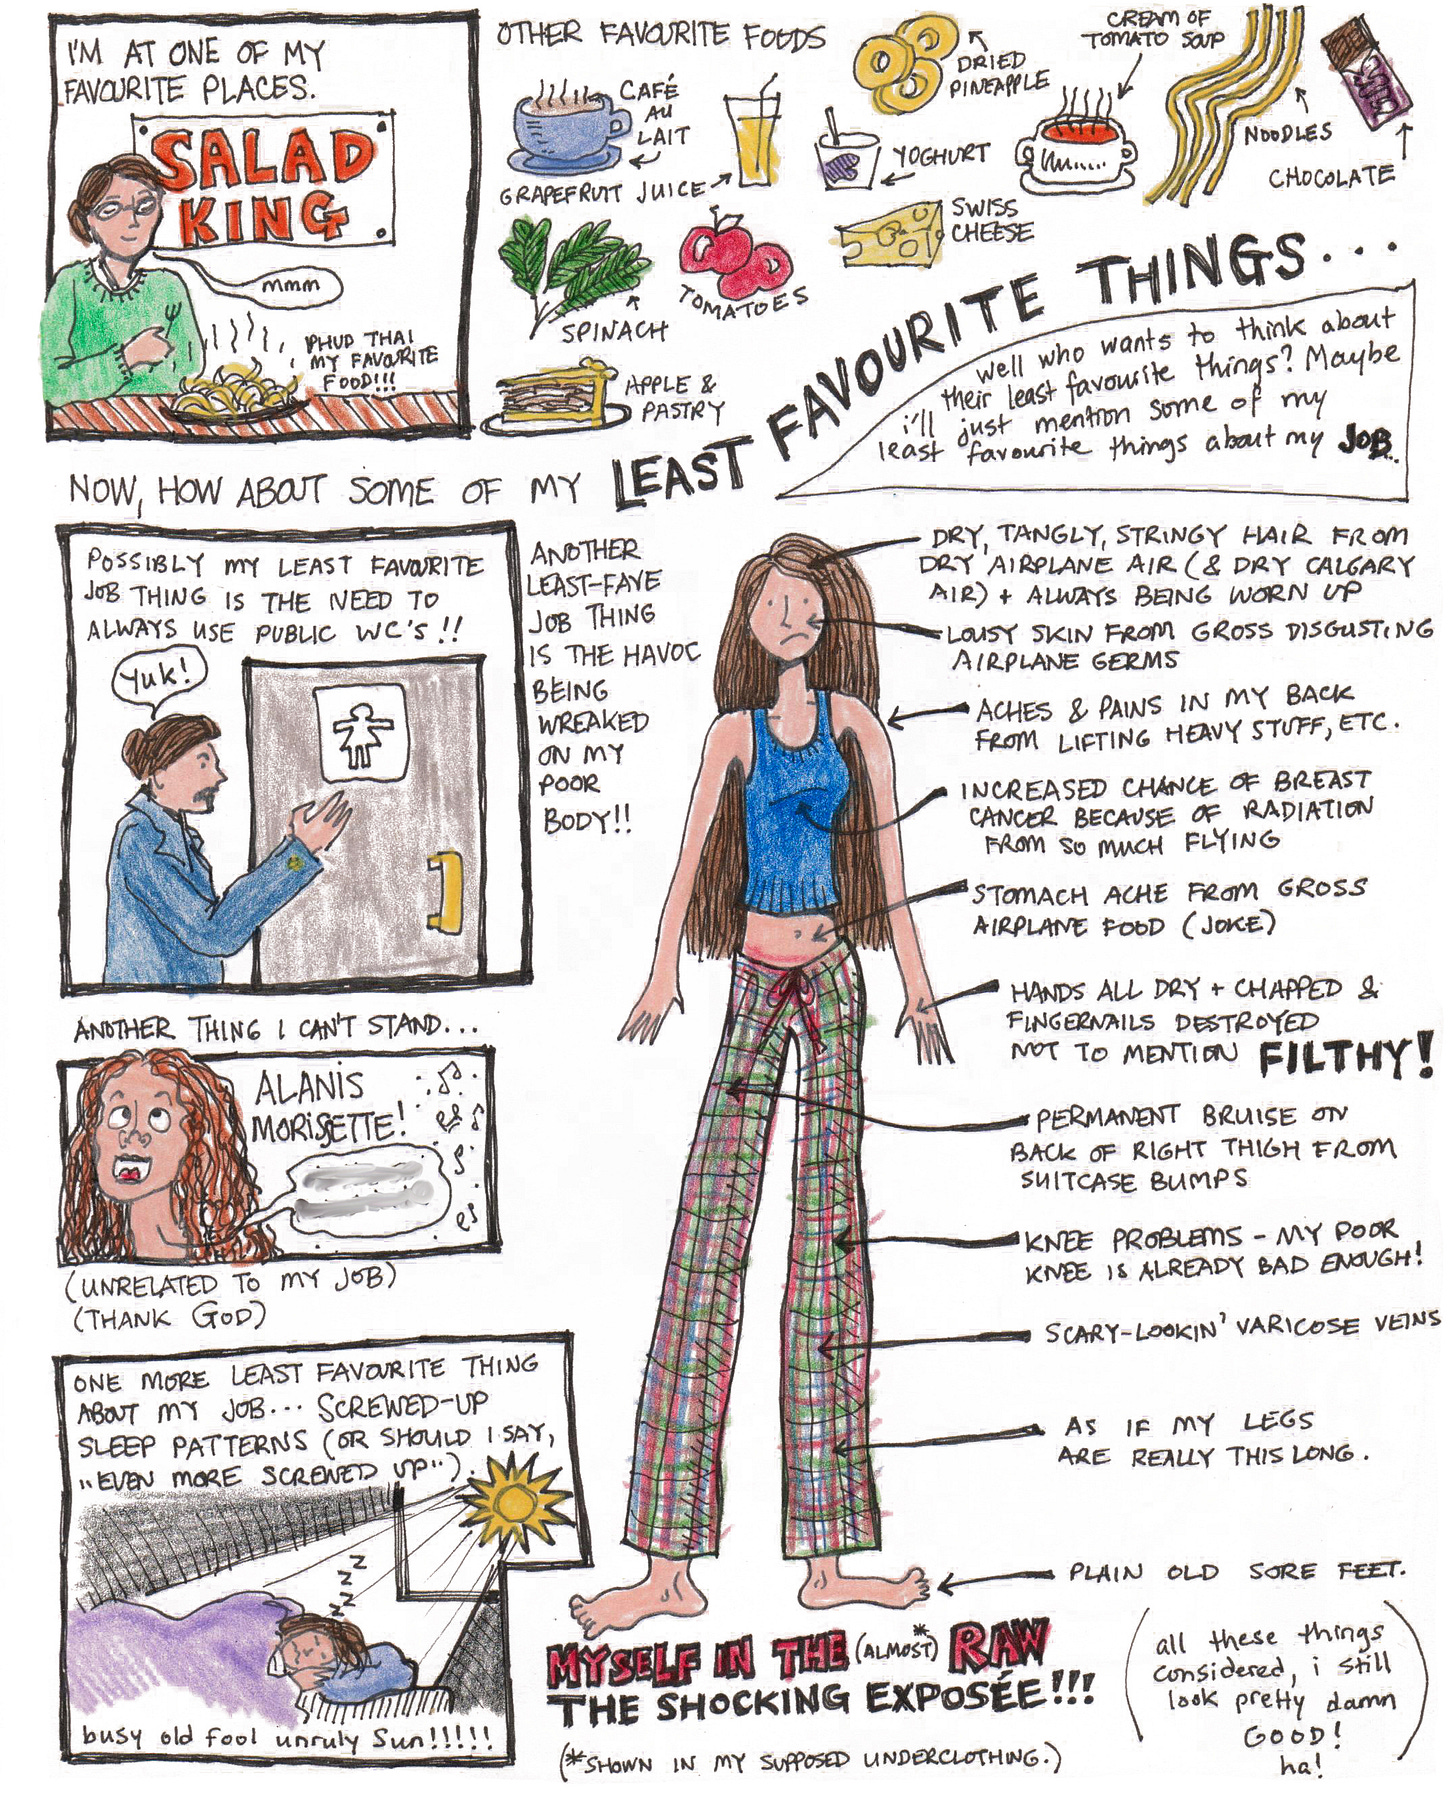 I'M AT ONE OF MY
FAVOURITE PLACES.
SALAD
KING
mmm
PHUD THAI
MY FAVOURITE
FOOD!!!
OTHER FAVOURITE FOODS
CAFÉ
AU
LAIT
GRAPEFRUIT JUICE
DRIED
PINEAPPLE
YOGHURT
CREAM OF
TOMATO SOUP
NOODLES
CHOCOLATE
SPINACH
TOMATOES
SWISS
CHEESE
APPLE &
PASTRY
NOW, HOW ABOUT SOME OF MY LEAST FAVOURITE THINGS...
well who wants to think about
their least favourite things? Maybe
i'll just mention some of my
least favourite things about my JOB..
POSSIBLY MY LEAST FAVOURITE
JOB THING IS THE NEED TO
ALWAYS USE PUBLIC WC'S!!
Yuk!
ANOTHER
LEAST-FAVE
JOB THING
IS THE HAVOC
BEING
WREAKED
ON MY
POOR
BODY!!
DRY, TANGLY, STRINGY HAIR FROM
DRY AIRPLANE AIR (& DRY CALGARY
AIR) + ALWAYS BEING WORN UP
LOUSY SKIN FROM GROSS DISGUSTING
AIRPLANE GERMS
ACHES & PAINS IN MY BACK
FROM LIFTING HEAVY STUFF, ETC.
INCREASED CHANCE OF BREAST
CANCER BECAUSE OF RADIATION
FROM SO MUCH FLYING
STOMACH ACHE FROM GROSS
AIRPLANE FOOD (JOKE)
HANDS ALL DRY + CHAPPED &
FINGERNAILS DESTROYED
NOT TO MENTION FILTHY!
PERMANENT BRUISE ON
BACK OF RIGHT THIGH FROM
SUITCASE BUMPS
KNEE PROBLEMS - MY POOR
KNEE IS ALREADY BAD ENOUGH!
SCARY-LOOKIN' VARICOSE VEINS
AS IF MY LEGS
ARE REALLY THIS LONG.
PLAIN OLD SORE FEET.
ANOTHER THING I CAN'T STAND...
ALANIS
MORISSETTE!
(UNRELATED TO MY JOB)
(THANK GOD)
ONE MORE LEAST FAVOURITE THING
ABOUT MY JOB... SCREWED-UP
SLEEP PATTERNS (OR SHOULD I SAY,
"EVEN MORE SCREWED UP").
Z
Z
Z
Z
busy old fool unruly Sun!!!!!
MYSELF IN THE (ALMOST*) RAW
THE SHOCKING EXPOSÉE!!!
(*SHOWN IN MY SUPPOSED UNDERCLOTHING.)
(all these things
considered, i still
look pretty damn
GOOD!
ha!)